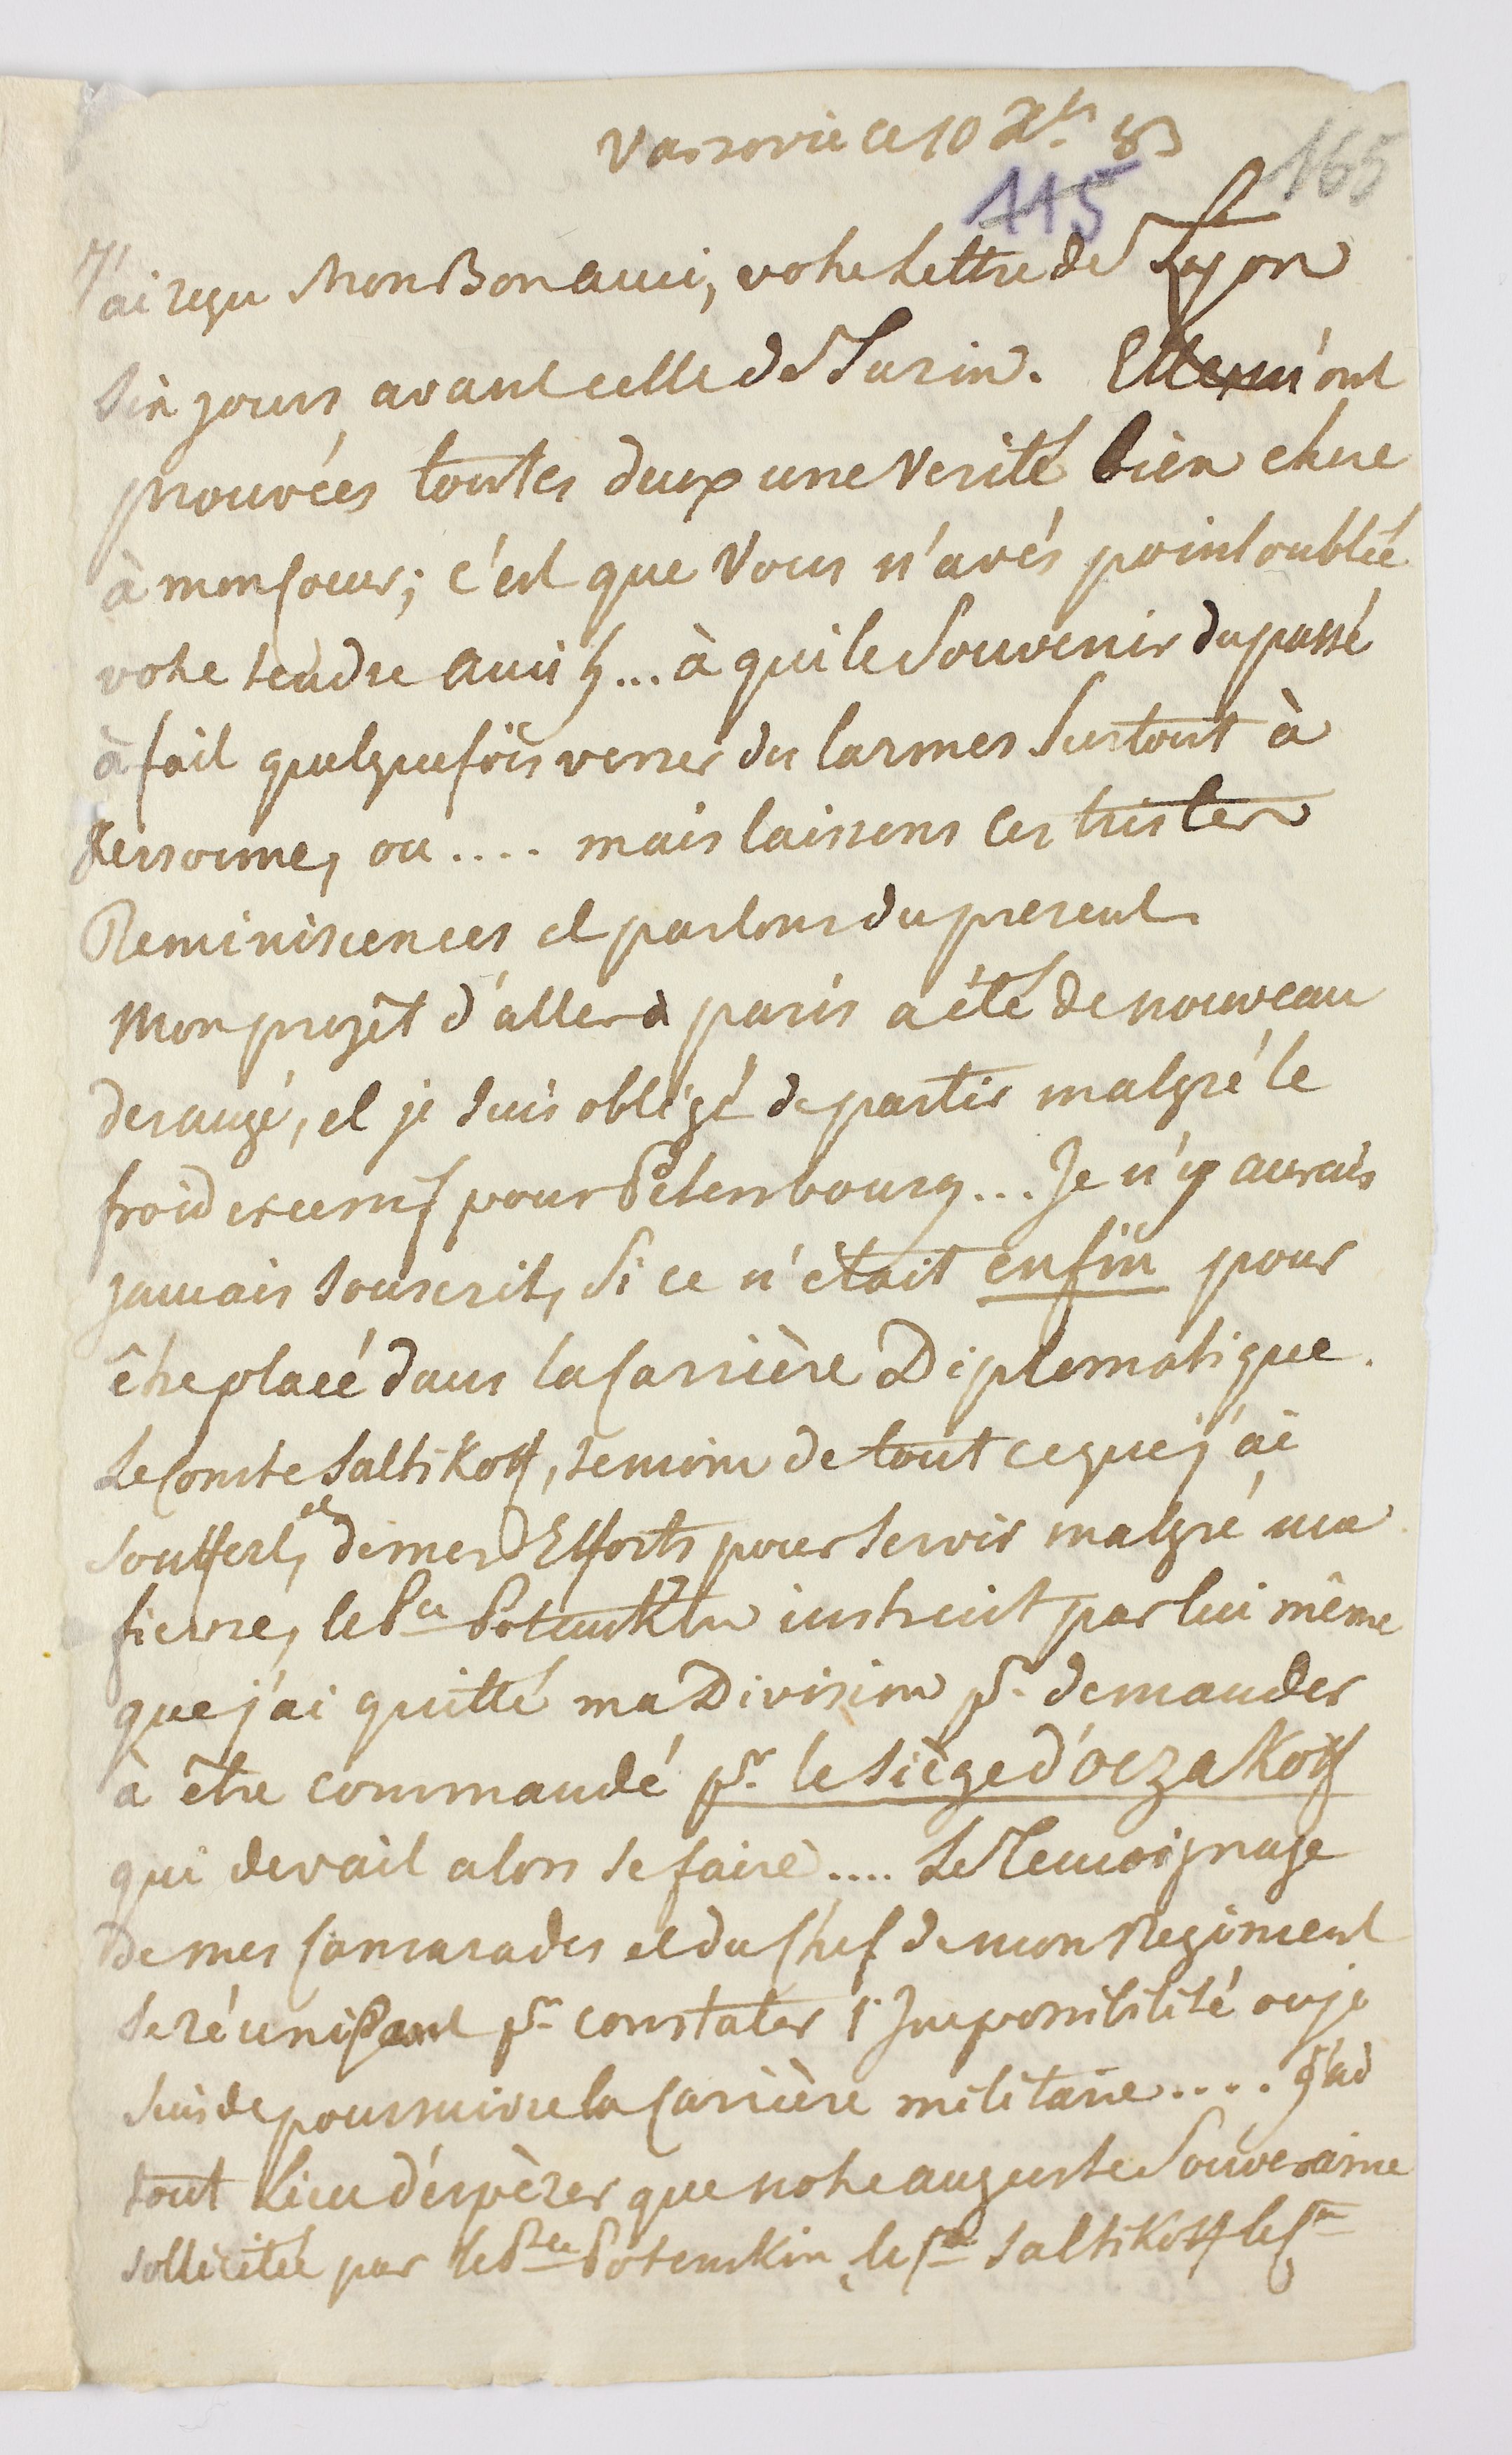 Varsovie ce 10 Xbr 83
165
115
J'ai reçu Mon Bon ami, votre Lettre de Lyon
Six jours avant celle de Turin. Elles m'ont
prouvées toutes deux une Verité bien chere
à mon Coeur; c'est que Vous n'avés point oublié
votre tendre ami ... à qui le Souvenir du passé
à fait quelquefois verser des larmes Surtout à
Kersonne, ou .... mais laissons ces tristes
Reminiscences et parlons du present.
Mon projêt d'aller à paris a été de nouveau
derangé, et je suis obligé de partir malgré le
froid excessif pour Petersbourg ... Je n'y aurais
jamais souscrit, Si ce n'était enfin pour
être placé dans la Carrière Diplomatique.
Le Comte Saltikoff, temoin de tout ce que j'ai
souffert, et de mes Efforts pour servir malgré ma
fievre, le Pce Potemkin instruit par lui même
que j'ai quitté ma Division pr. demander
à être commandé pr. le siège d'Oczakoff
qui devait alors se faire .... Le Temoignage
de mes Camarades et du Chef de mon Regiment
se réunissant pr constater l'Impossibilité ou je
suis de poursuivre la Carrière militaire .... J'ai
tout Lieu d'éspèrer que notre auguste Souveraine
sollicitée par le Pce Potemkin, le Cte Saltikoff le Cte